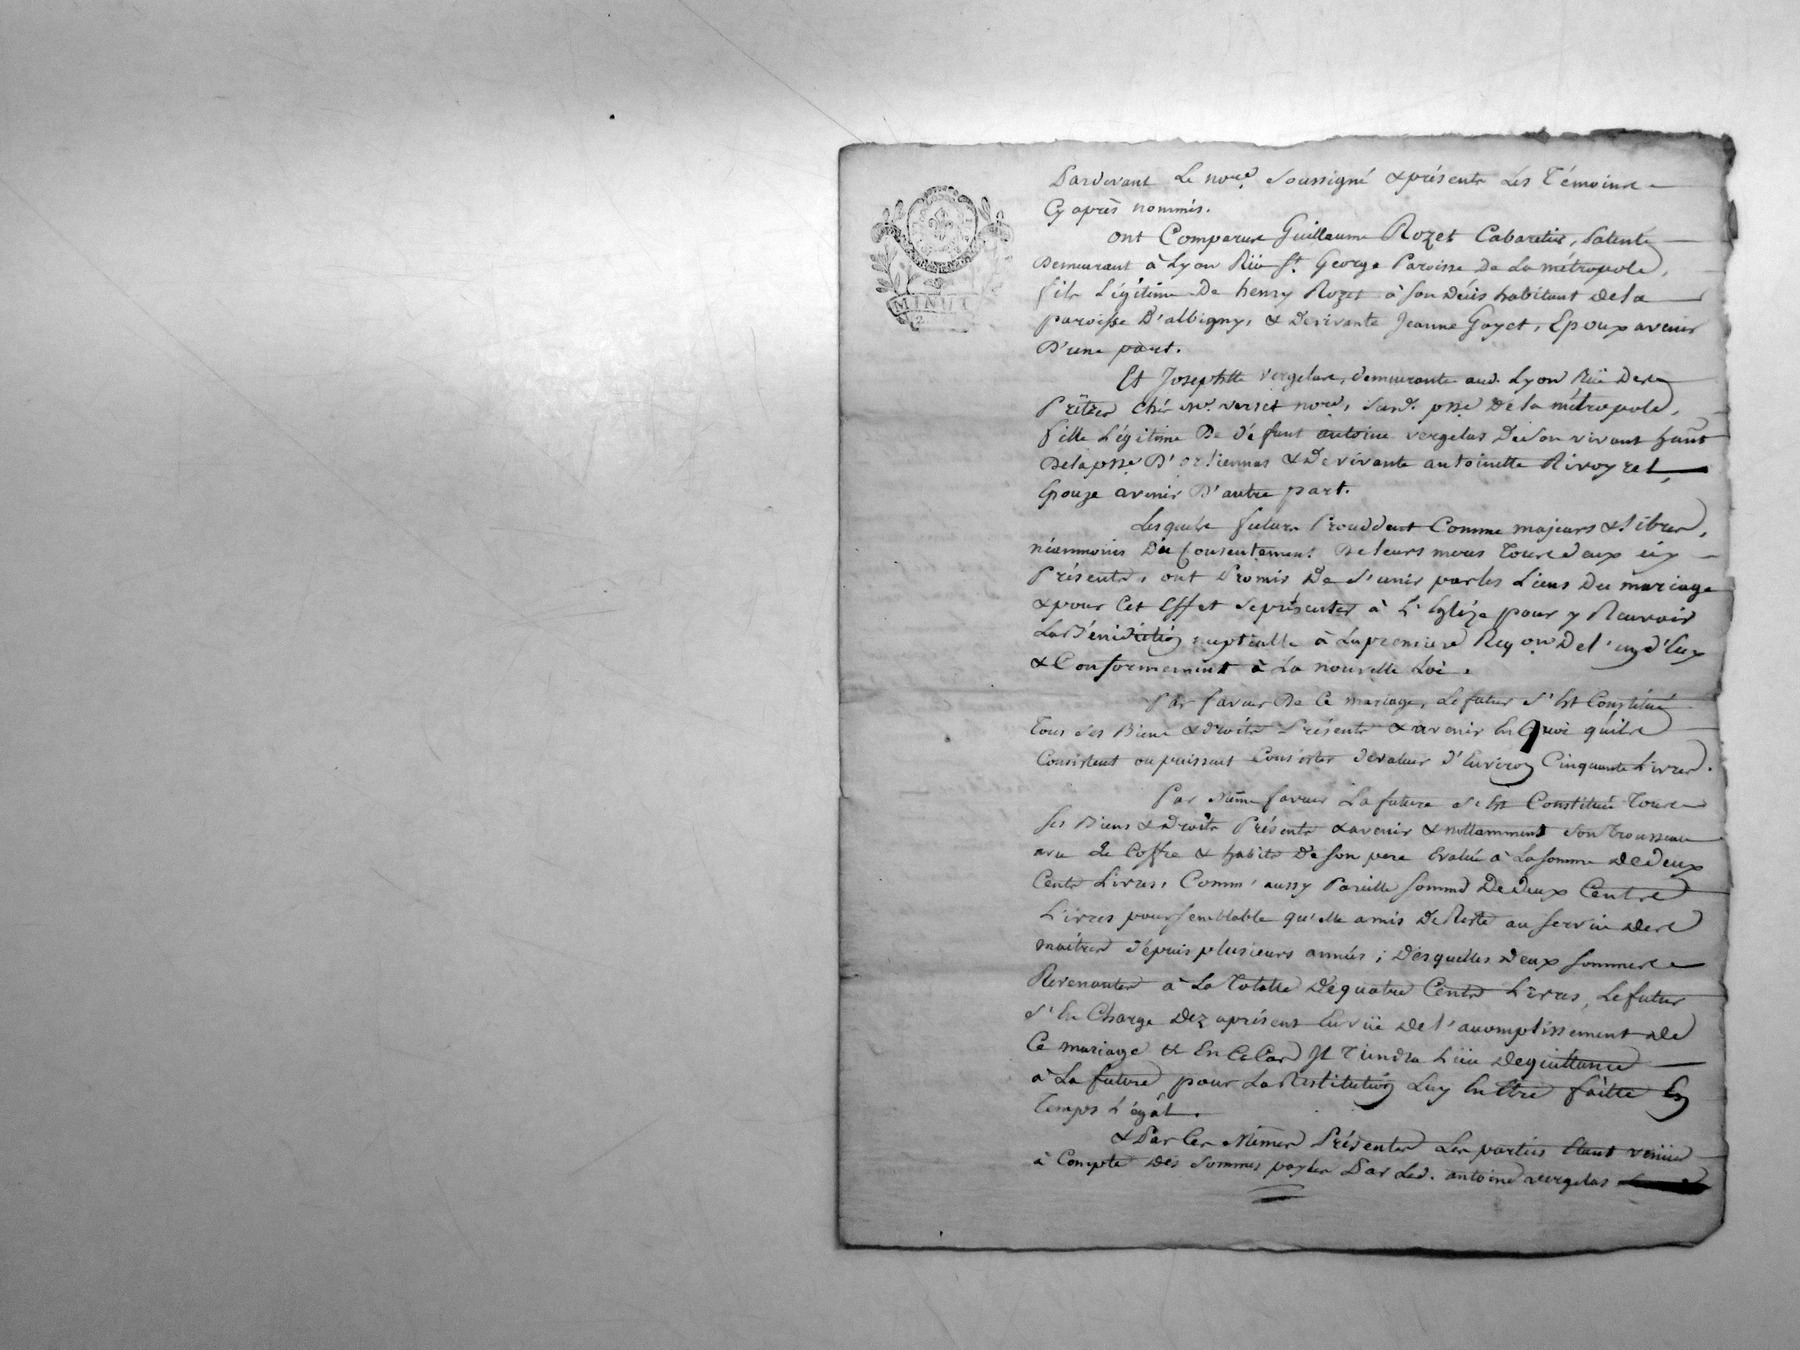 Pardevant Le no.re soussigné & présents Les Témoins
Cy après nommés.
ont Comparus Guillaume Rozet Cabaretier, patenté
Demeurant à Lyon Rüe St. George Paroisse De La métropole,
fils Légitime De henry Rozet à son décès habitant de la
paroisse D'albigny, & De vivante Jeanne Gayet, Epoux avenir
D'une part.
Et Josephtte vergelas, demeurante aud. Lyon Rüe Des
Prêtres chéz mr. verset no.re, susd. psse De la métropole,
fille Légitime De défunt antoine vergelas De son vivant habt
De la psse D' & De vivante antoinette Rivoyret,
Epouze avenir D'autre part.
Lesquels futurs Procédant Comme majeurs & Libres,
néammoins Du Consentement De leurs meres Toutes deux icy
Présentes, ont Promis De s'unir par les Liens Du mariage
& pour Cet Effet se présenter à L'Eglize pour y Recevoir
La Bénédiction nuptialle à La premiere Reqon De l'un d'Eux
& Conformement à La nouvelle Loi.
Par faveur De Ce mariage, Le futur s'Est Constitué
Tous ses Biens & droits Présents & avenir En quoi qu'ils
Consistent ou puissent Consister de valeur d'Environ Cinquante Livres.
Par Même faveur La future s'Est Constitué Tous
ses Biens & Droits Présents & avenir & nottamment son Trousseau
avec Le Coffre & habits De son pere Evalué à La somme De deux
Cents Livres, Comm' aussy Pareille somme De deux Cents
Livres pour semblable qu'elle a mis De Reste au service des
maîtres dépuis plusieurs années; Desquelles deux sommes
Revenantes à La Totalle De quatre Cents Livres, Le futur
s'En Charge Dez aprésent En vüe De l'accomplissement De
Ce mariage & En Ce Cas Il Tiendra Lieu De quittance
à La future pour La Restitution Luy En Etre faitte En
Temps L'égal.
& Par Ces Mêmes Présentes Les parties Etant venües
à Compte Des sommes payées Par Led. antoine vergelas
MINUT